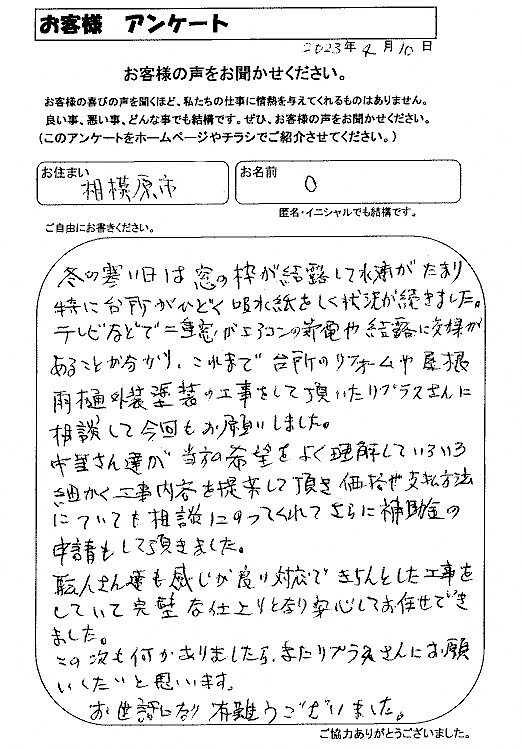 お客様 アンケート
2023年4月10日
お客様の声をお聞かせください。
お客様の喜びの声を聞くほど、私たちの仕事に情熱を与えてくれるものはありません。
良い事、悪い事、どんな事でも結構です。ぜひ、お客様の声をお聞かせください。
(このアンケートをホームページやチラシでご紹介させてください。)
お住まい 相模原市
お名前 O
匿名・イニシャルでも結構です。
ご自由にお書きください。
冬の寒い日は窓の枠が結露して水滴がたまり
特に台所がひどく吸水紙をしく状況が続きました。
テレビなどで二重窓がエアコンの節電や結露に効果が
あることが分かり、これまで台所のリフォームや屋根
雨樋外装塗装の工事をして頂いたリプラスさんに
相談して今回もお願いしました。
中里さん達が当方の希望をよく理解していろいろ
細かく工事内容を提案して頂き価格や支払方法
についても相談にのってくれてさらに補助金の
申請もして頂きました。
職人さん達も感じが良り対応できちんとした工事を
していて完璧な仕上りとなり安心してお任せでき
ました。
この次も何かありましたら、またリプラスさんにお願
いしたいと思います。
お世話になり有難うございました。
ご協力ありがとうございました。